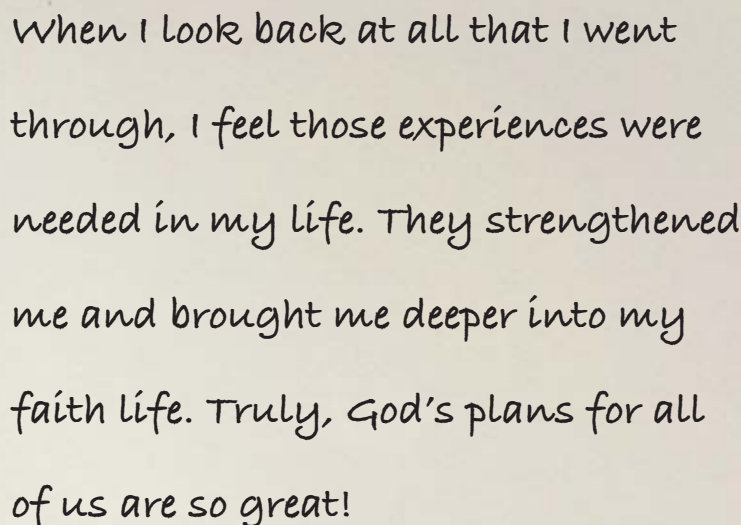 When I look back at all that I went
through, I feel those experiences were
needed in my life. They strengthened
me and brought me deeper into my
faith life. Truly, God's plans for all
of us are so great!